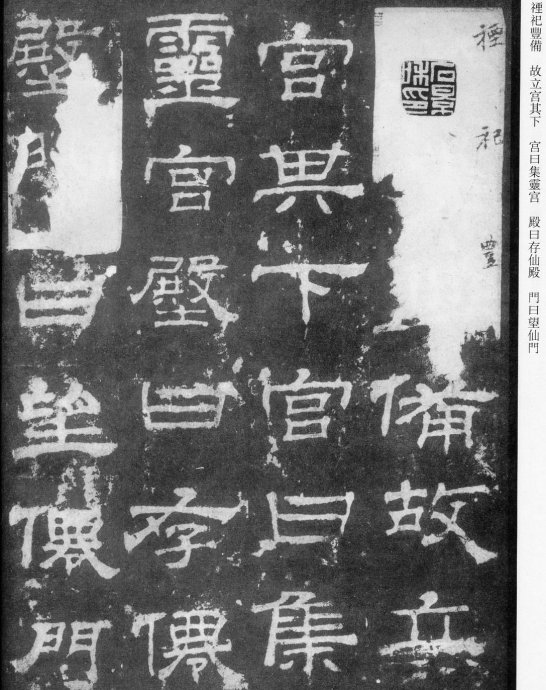 禋祀豐備　故立宮其下　宮曰集靈宮　殿曰存仙殿　門曰望仙門
禋祀豐備故立
宮其下宮曰集
靈宮殿曰存僊
殿門曰望僊門